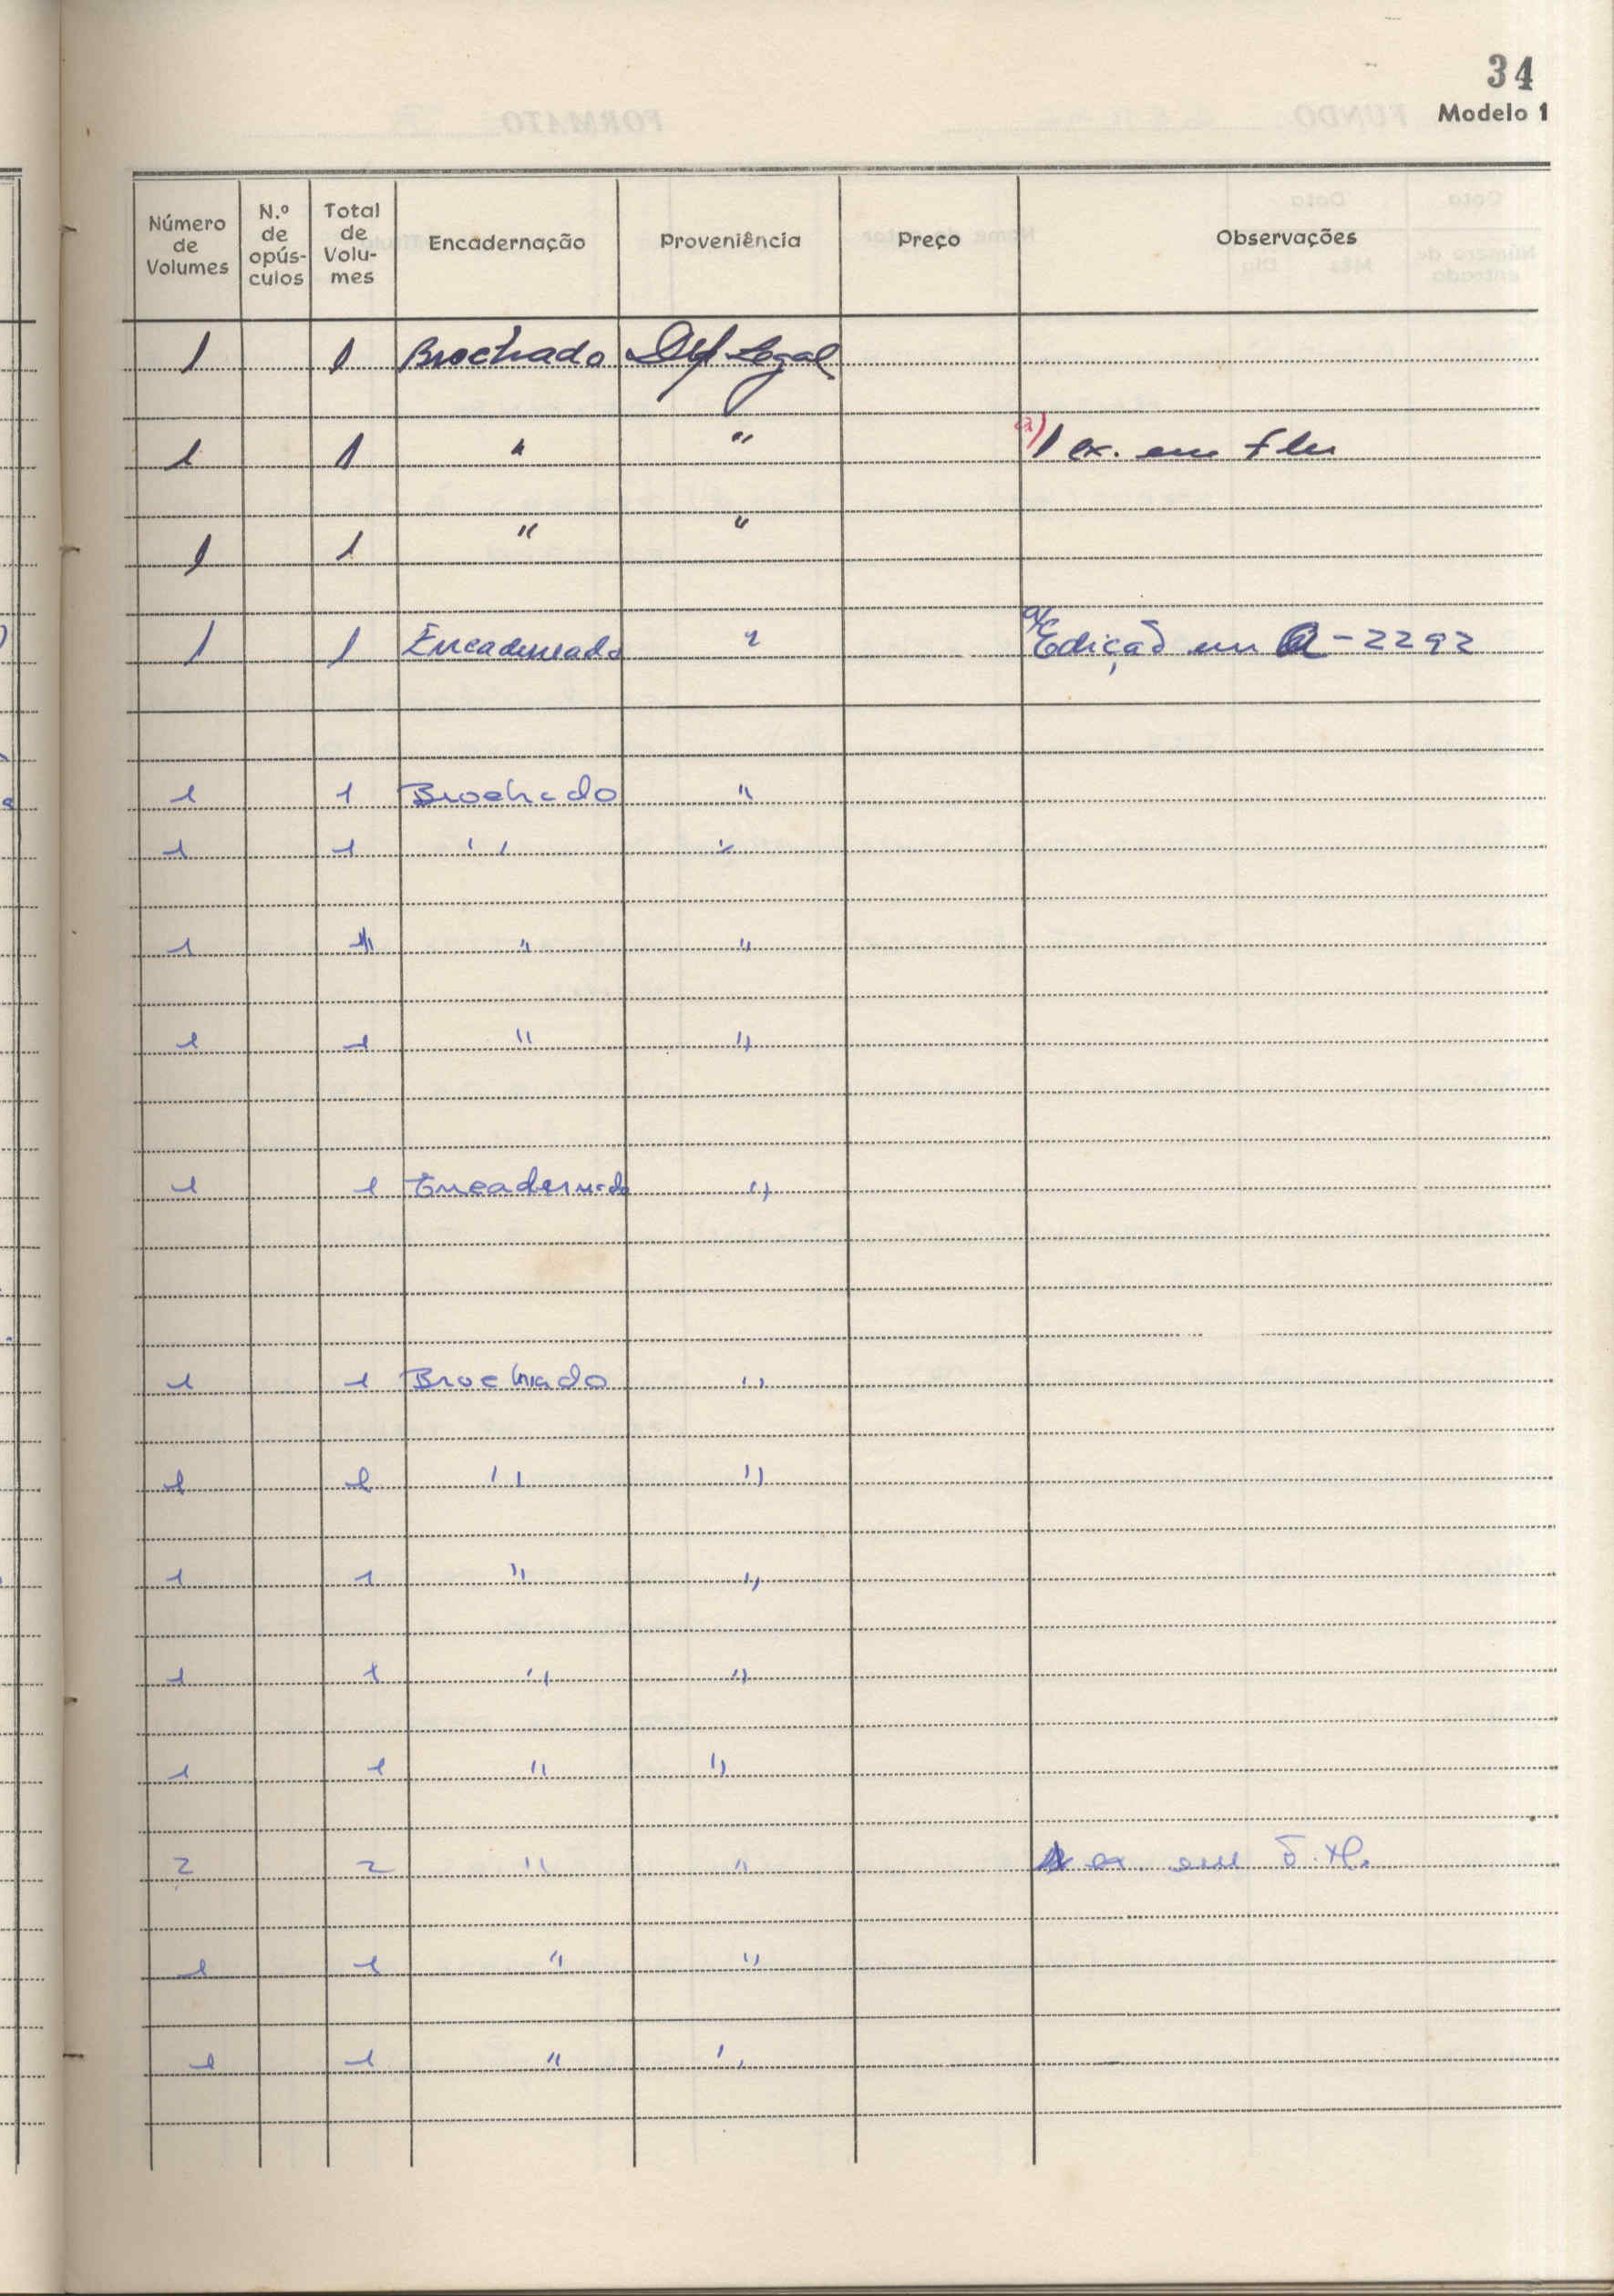 34
Modelo 1
Número de Volumes N.º de opús-culos Total de Volu-mes Encadernação Proveniência Preço Observações
1 1 Brochado Dep. Legal
1 1 " " a) 1 ex. em
1 1 " "
1 1 Encadernado " Edição em -2292
1 1 Brochado "
1 1 " "
1 1 " "
1 1 " "
1 1 Encadernado "
1 1 Brochado "
1 1 " "
1 1 " "
1 1 " "
1 1 " "
2 2 " " ex. em
1 1 " "
1 1 " "